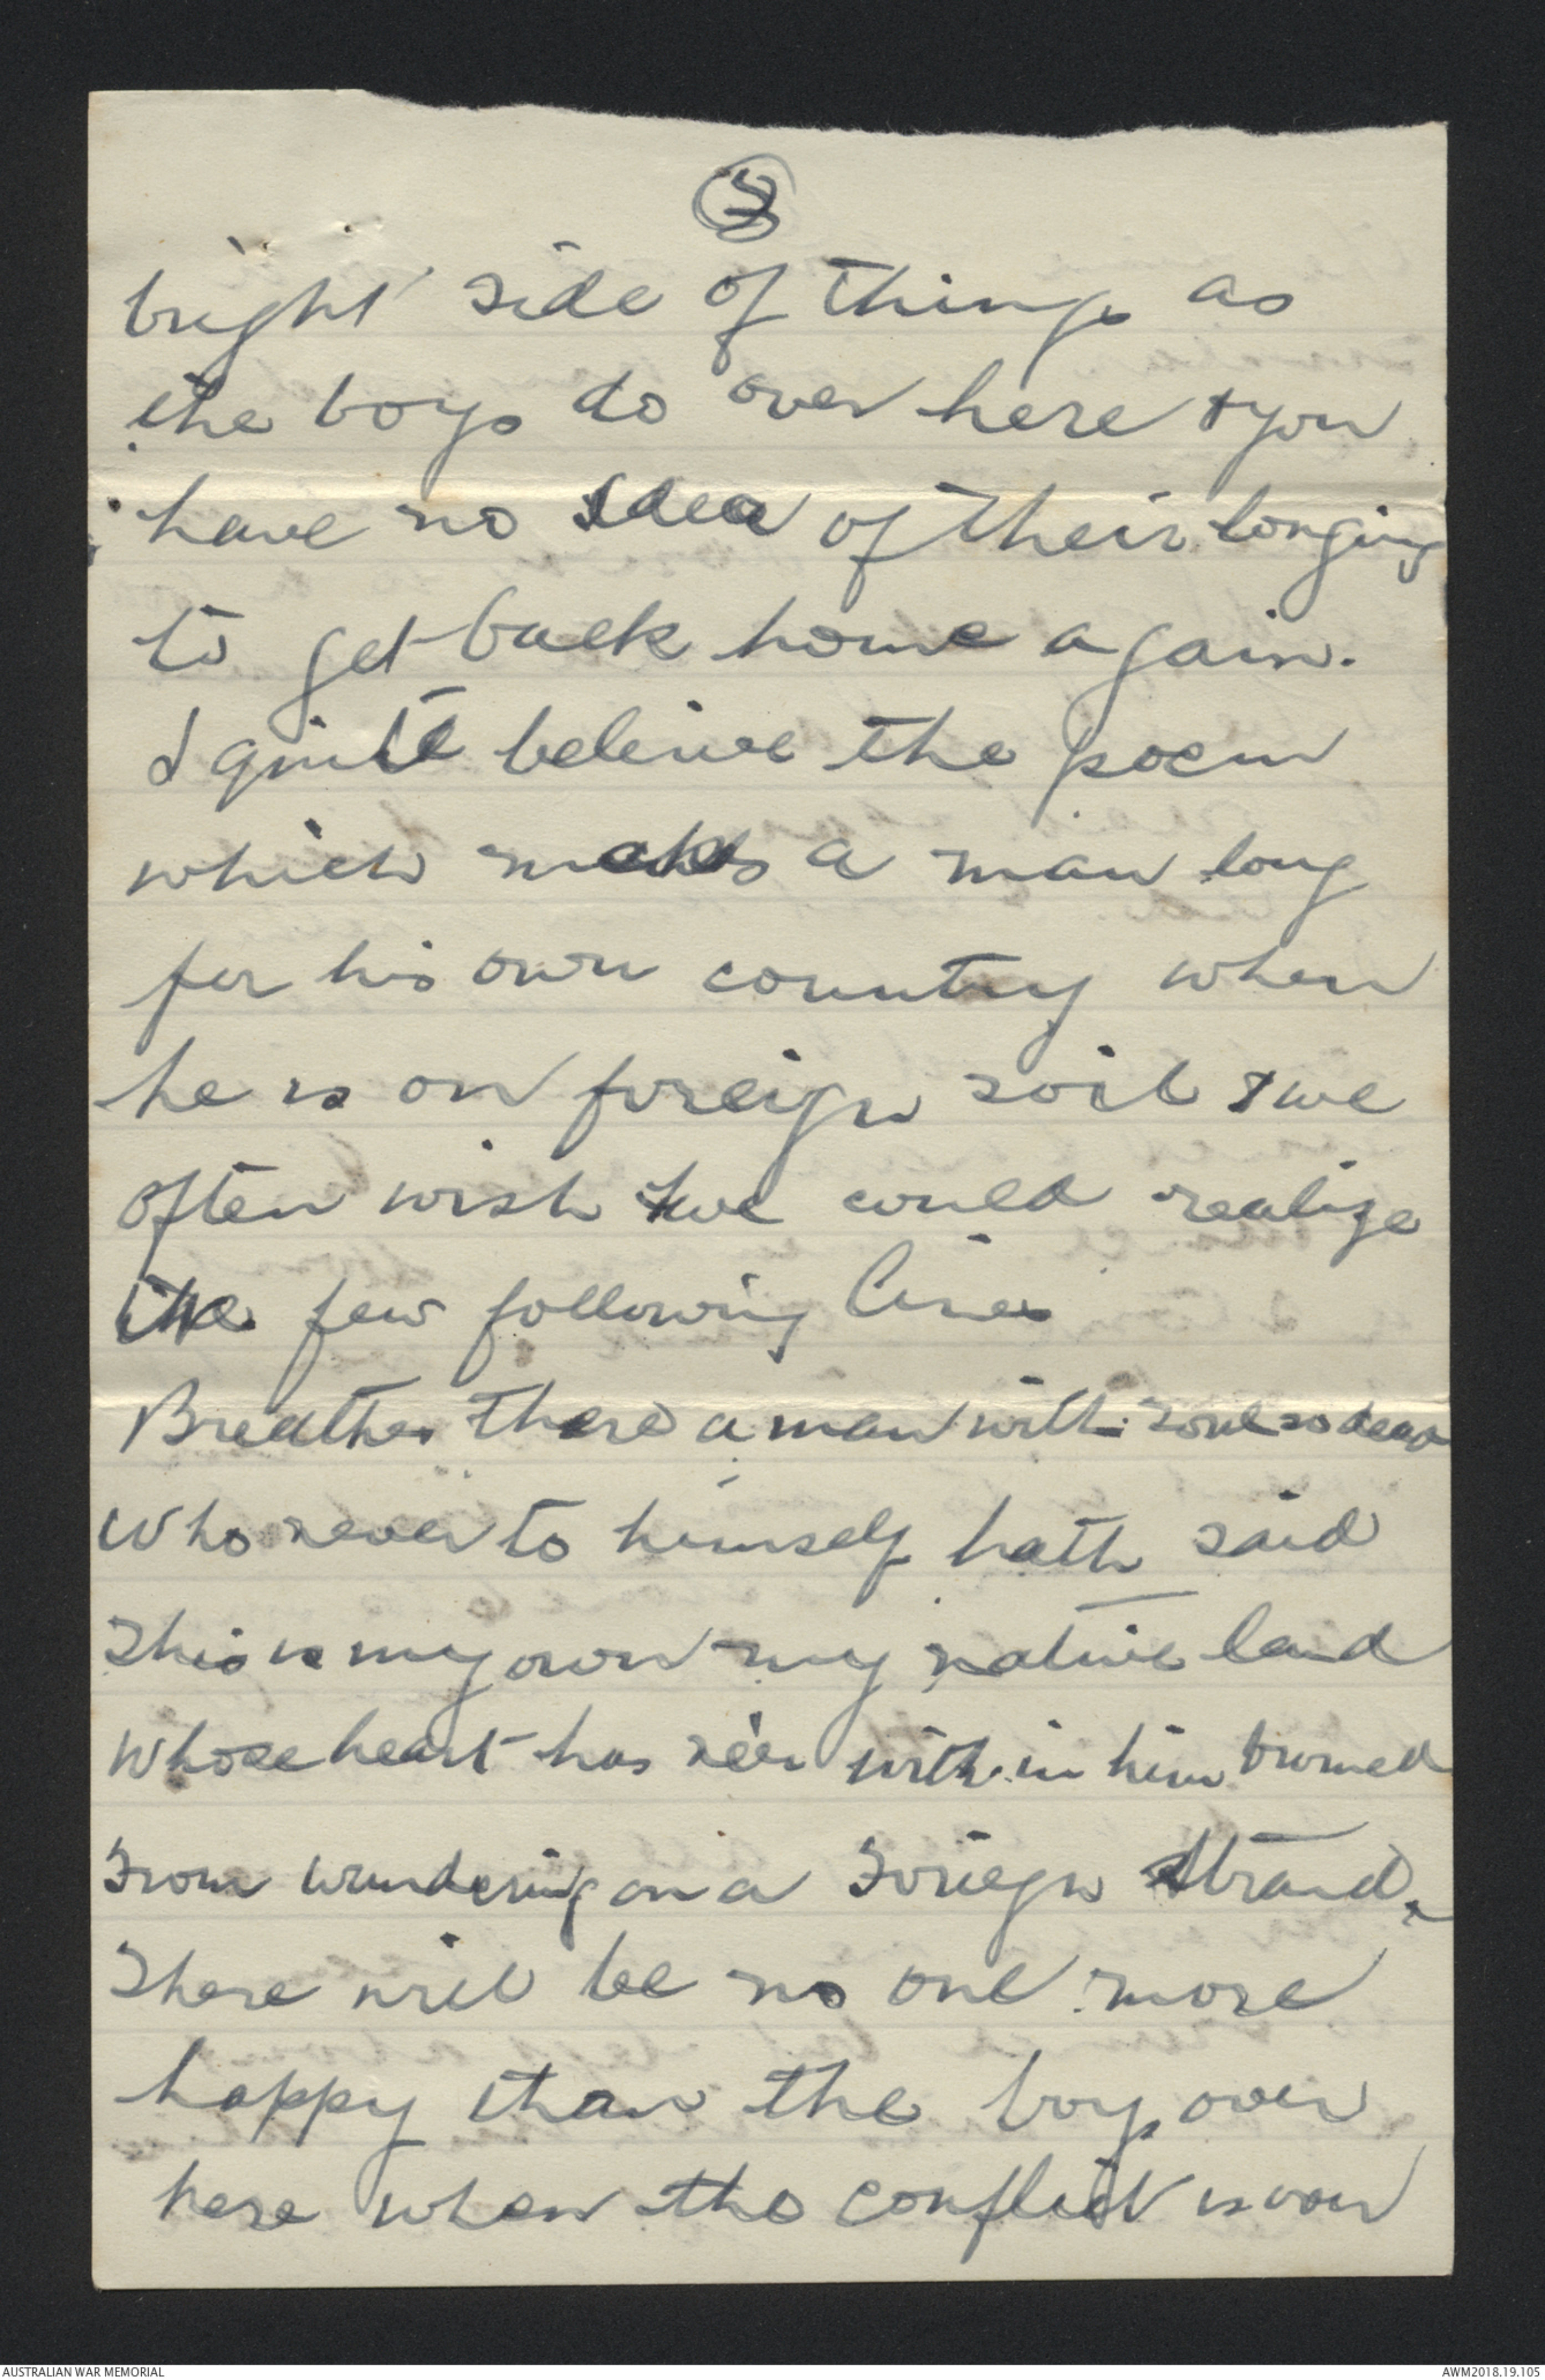 bright side of things as
the boys do over here & you
have no idea of their longing
to get back home again.
I quite beleive the poem
which makes a man long
for his own country when
he is on foreign soil & we
often wish & we could realize
the few following lines
Breathes there a man with soul so dead
Who never to himself hath said
This is my own my native land
Whose heart has ne'er with in him burned
From wandering on a foriegn Strand.
There will be no one more
happy than the boys over
here when the conflict is over
AUSTRALIAN WAR MEMORIAL
AWM2018.19.105